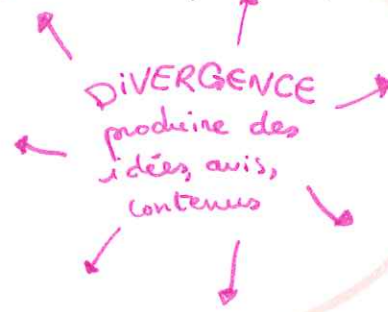 DiVERGENCE
produire des
idées, avis,
contenus